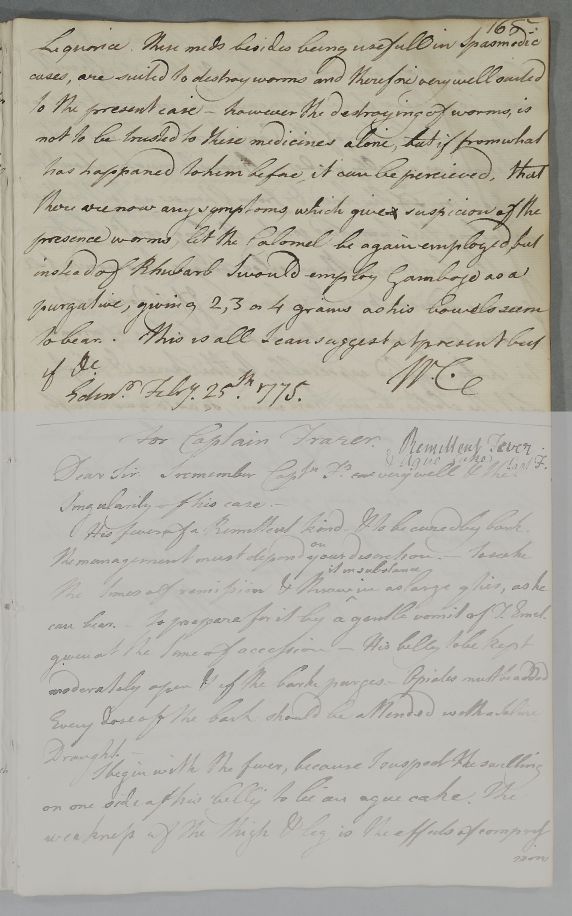 165
Liquorice. These meds besides being usefull in Spasmodic
cases, are suited to destroy worms and therefore very well suited
to the present case – however the destroying of worms, is
not to be trusted to these medicines alone, but if from what
has happaned to him before, it can be percieved, that
there are now any symptoms which give suspicion of the
presence worms, let the Calomel be again employed but
instead of Rhubarb I would employ Gamboge as a
purgative, giving 2, 3 or 4 grains as his bowels seem
to bear. This is all I can suggest at present but
if &c. W.C.
Edinr. Febry. 25th. 1775.
For Captain Frazer. Remittent Fever
& Ague cake Capt F.
Dear Sir. I remember Captn. Fr. very well & the
singularity of his case. –
His fever of a Remittent kind & to be cured by bark.
The management must depend on your discretion. – to take
the times of remission & throw it in substance in as large qties, as he
can bear. – to prepare for it by a gentle vomit of T. Emet.
given at the time of accession – His belly to be kept
moderately open & if the bark purges – Opiates must be added
Every dose of the bark should be attended with a saline
Draught. –
I begin with the fever, because I suspect the swelling
on one side of his belly to be an ague cake. The
weakness of the thigh & leg is the effects of compress
sion